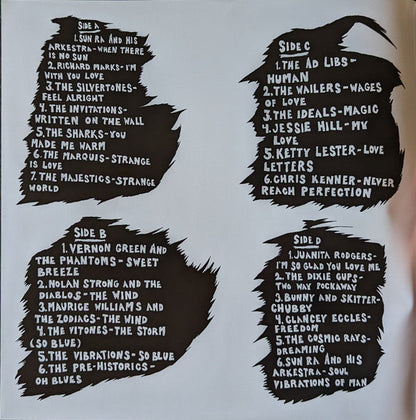 SIDE A
1. SUN RA AND HIS
ARKESTRA - WHEN THERE
IS NO SUN
2. RICHARD MARKS - I'M
WITH YOU LOVE
3. THE SILVERTONES -
FEEL ALRIGHT
4. THE INVITATIONS -
WRITTEN ON THE WALL
5. THE SHARKS - YOU
MADE ME WARM
6. THE MARQUIS - STRANGE
IS LOVE
7. THE MAJESTICS - STRANGE
WORLD
SIDE B
1. VERNON GREEN AND
THE PHANTOMS - SWEET
BREEZE
2. NOLAN STRONG AND THE
DIABLOS - THE WIND
3. MAURICE WILLIAMS AND
THE ZODIACS - THE WIND
4. THE VITONES - THE STORM
(SO BLUE)
5. THE VIBRATIONS - SO BLUE
6. THE PRE-HISTORICS -
OH BLUES
SIDE C
1. THE AD LIBS -
HUMAN
2. THE WAILERS - WAGES
OF LOVE
3. THE IDEALS - MAGIC
4. JESSIE HILL - MY
LOVE
5. KETTY LESTER - LOVE
LETTERS
6. CHRIS KENNER - NEVER
REACH PERFECTION
SIDE D
1. JUANITA RODGERS -
I'M SO GLAD YOU LOVE ME
2. THE DIXIE CUPS -
TWO WAY POCKAWAY
3. BUNNY AND SKITTER -
CHUBBY
4. CLANCEY ECCLES -
FREEDOM
5. THE COSMIC RAYS -
DREAMING
6. SUN RA AND HIS
ARKESTRA - SOUL
VIBRATIONS OF MAN